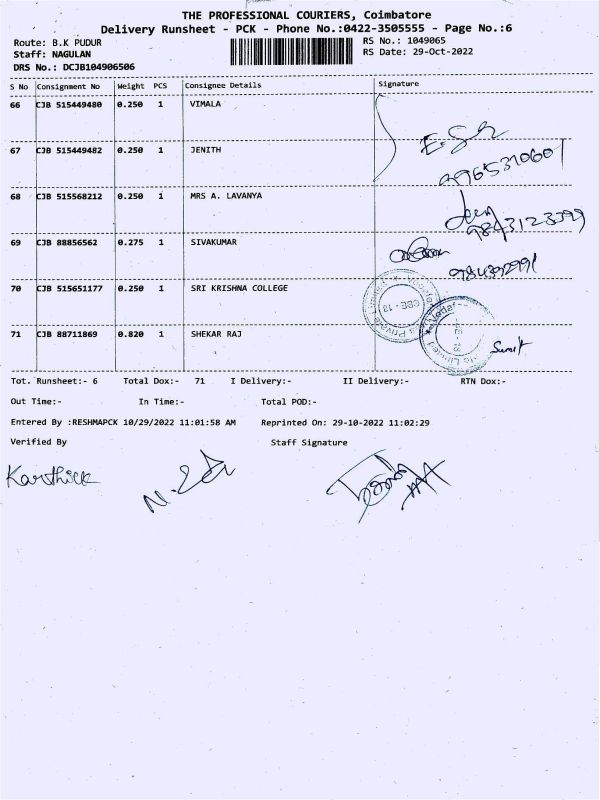 THE PROFESSIONAL COURIERS, Coimbatore
Delivery Runsheet - PCK - Phone No.:0422-3505555 - Page No.:6
Route: B.K PUDUR
RS No.: 1049065
Staff: NAGULAN
RS Date: 29-Oct-2022
DRS No.: DCJB104906506
S No Consignment No Weight PCS Consignee Details Signature
66 CJB 515449480 0.250 1 VIMALA
67 CJB 515449482 0.250 1 JENITH
68 CJB 515568212 0.250 1 MRS A. LAVANYA
9843123399
69 CJB 88856562 0.275 1 SIVAKUMAR
70 CJB 515651177 0.250 1 SRI KRISHNA COLLEGE
71 CJB 88711869 0.820 1 SHEKAR RAJ
Sumit
Tot. Runsheet:- 6 Total Dox:- 71 I Delivery:- II Delivery:- RTN Dox:-
Out Time:- In Time:- Total POD:-
Entered By :RESHMAPCK 10/29/2022 11:01:58 AM Reprinted On: 29-10-2022 11:02:29
Verified By Staff Signature
Karthick